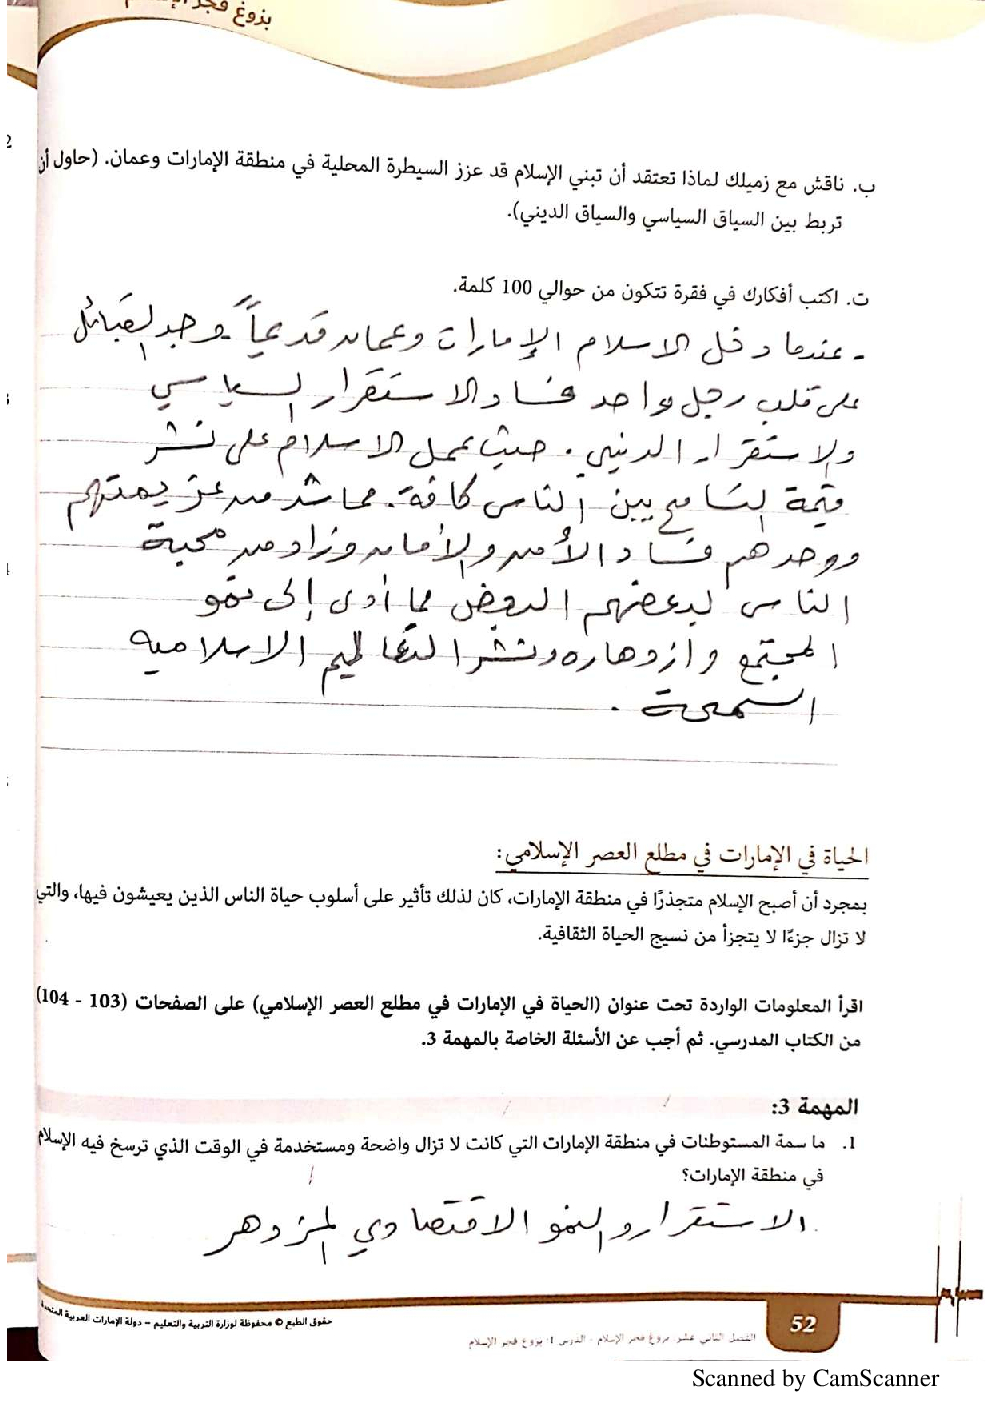 بزوغ فجر
ب. ناقش مع زميلك لماذا تعتقد أن تبني الإسلام قد عزز السيطرة المحلية في منطقة الإمارات وعمان. (حاول أن
تربط بين السياق السياسي والسياق الديني).
ت. اكتب أفكارك في فقرة تتكون من حوالي 100 كلمة.
- عندما دخل الاسلام الإمارات وعمان قديماً وجد القبائل
على قلب رجل واحد فساد الاستقرار السياسي
والاستقرار الديني. حيث عمل الاسلام على نشر
قيمة التسامح بين الناس كافة. مما شد من عزيمتهم
ووحدهم فساد الأمن والأمان وزاد من محبة
الناس لبعضهم البعض مما أدى إلى نمو
المجتمع وازدهاره ونشر التعاليم الاسلاميه
السمحة .
الحياة في الإمارات في مطلع العصر الإسلامي:
بمجرد أن أصبح الإسلام متجذرًا في منطقة الإمارات، كان لذلك تأثير على أسلوب حياة الناس الذين يعيشون فيها، والتي
لا تزال جزءًا لا يتجزأ من نسيج الحياة الثقافية.
اقرأ المعلومات الواردة تحت عنوان (الحياة في الإمارات في مطلع العصر الإسلامي) على الصفحات (103 - 104)
من الكتاب المدرسي. ثم أجب عن الأسئلة الخاصة بالمهمة 3.
المهمة 3:
1. ما سمة المستوطنات في منطقة الإمارات التي كانت لا تزال واضحة ومستخدمة في الوقت الذي ترسخ فيه الإسلام
في منطقة الإمارات؟
الاستقرار والنمو الاقتصادي المزدهر
حقوق الطبع © محفوظة لوزارة التربية والتعليم – دولة الإمارات العربية المتحدة
52
الفصل الثاني عشر بزوغ فجر الإسلام - الدرس 1: بزوغ فجر الإسلام
Scanned by CamScanner